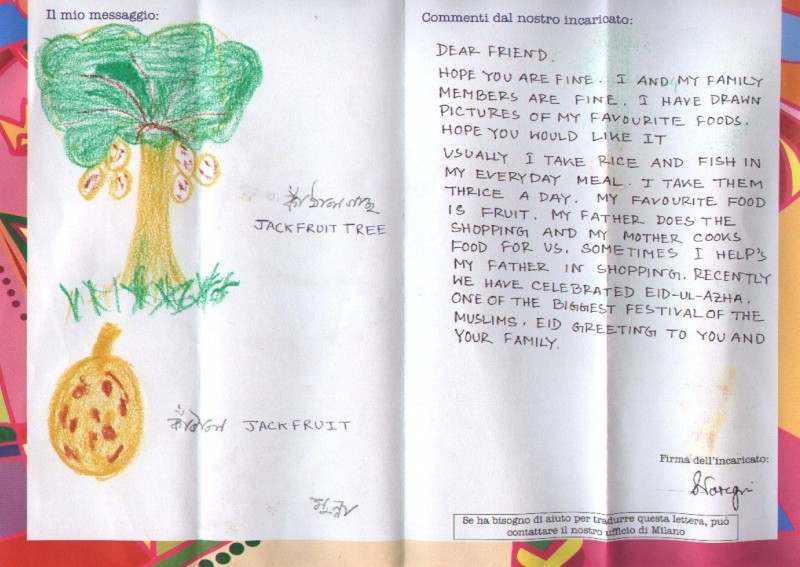 Il mio messaggio:
কাঁঠাল গাছ
JACKFRUIT TREE
কাঁঠাল JACKFRUIT
Commenti dal nostro incaricato:
DEAR FRIEND.
HOPE YOU ARE FINE. I AND MY FAMILY
MEMBERS ARE FINE. I HAVE DRAWN
PICTURES OF MY FAVOURITE FOODS.
HOPE YOU WOULD LIKE IT
USUALLY I TAKE RICE AND FISH IN
MY EVERYDAY MEAL. I TAKE THEM
THRICE A DAY. MY FAVOURITE FOOD
IS FRUIT. MY FATHER DOES THE
SHOPPING AND MY MOTHER COOKS
FOOD FOR US. SOMETIMES I HELP'S
MY FATHER IN SHOPPING. RECENTLY
WE HAVE CELEBRATED EID-UL-AZHA.
ONE OF THE BIGGEST FESTIVAL OF THE
MUSLIMS. EID GREETING TO YOU AND
YOUR FAMILY.
Firma dell'incaricato:
Se ha bisogno di aiuto per tradurre questa lettera, può
contattare il nostro ufficio di Milano